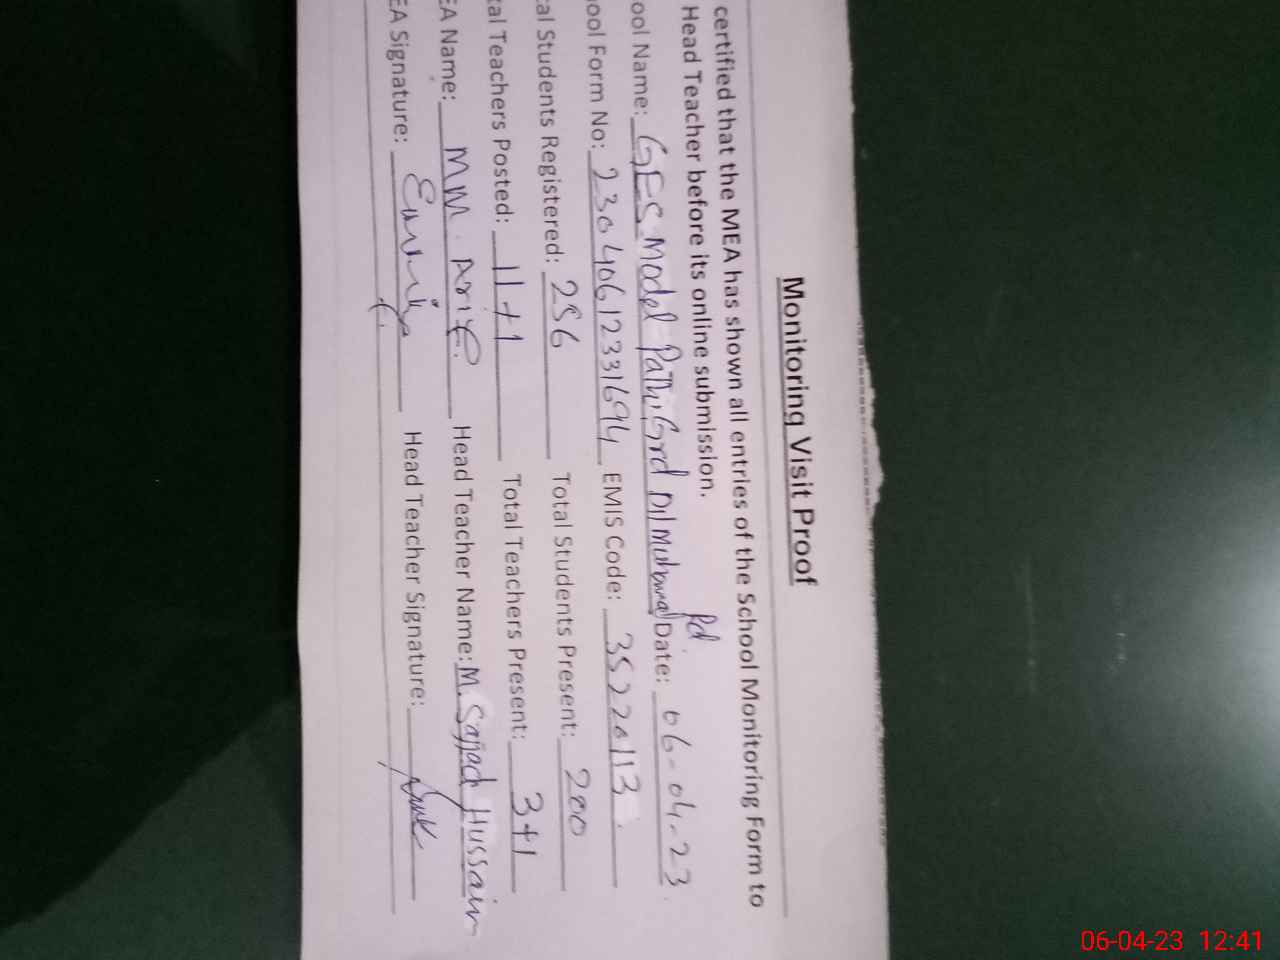 Monitoring Visit Proof
certified that the MEA has shown all entries of the School Monitoring Form to
Head Teacher before its online submission.
ool Name: GES Model Pathi Grd Dil Muhamad Pd. Date: 06-04-23
ool Form No: 230406123331694 EMIS Code: 35220113.
tal Students Registered: 256 Total Students Present: 200
tal Teachers Posted: 11+1 Total Teachers Present: 3+1
EA Name: MM. Arif. Head Teacher Name: M. Sajjad Hussain
EA Signature: Head Teacher Signature:
06-04-23 12:41